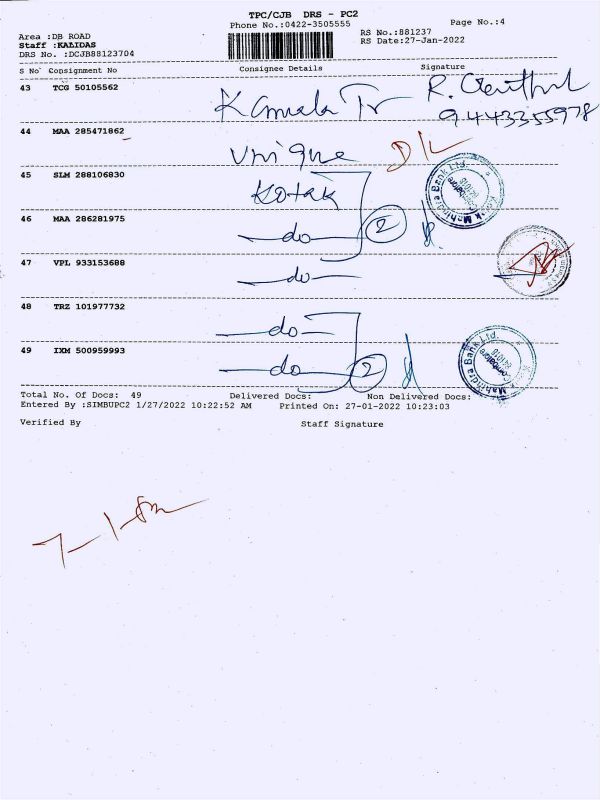 TPC/CJB DRS - PC2
Phone No.:0422-3505555
Page No.:4
Area :DB ROAD
RS No.:881237
Staff :KALIDAS
RS Date:27-Jan-2022
DRS No. :DCJB88123704
S No Consignment No Consignee Details Signature
43 TCG 50105562
Kamala Tr R.
9443355978
44 MAA 285471862
Unique D/L
45 SLM 288106830
Kotak
Kotak Mahindra Bank Ltd.
Coimbatore
641018
46 MAA 286281975
do 2
47 VPL 933153688
do
48 TRZ 101977732
do
49 IXM 500959993
do 2
Mahindra Bank Ltd.
Coimbatore
641018
Total No. Of Docs: 49 Delivered Docs: Non Delivered Docs:
Entered By :SIMBUPC2 1/27/2022 10:22:52 AM Printed On: 27-01-2022 10:23:03
Verified By Staff Signature